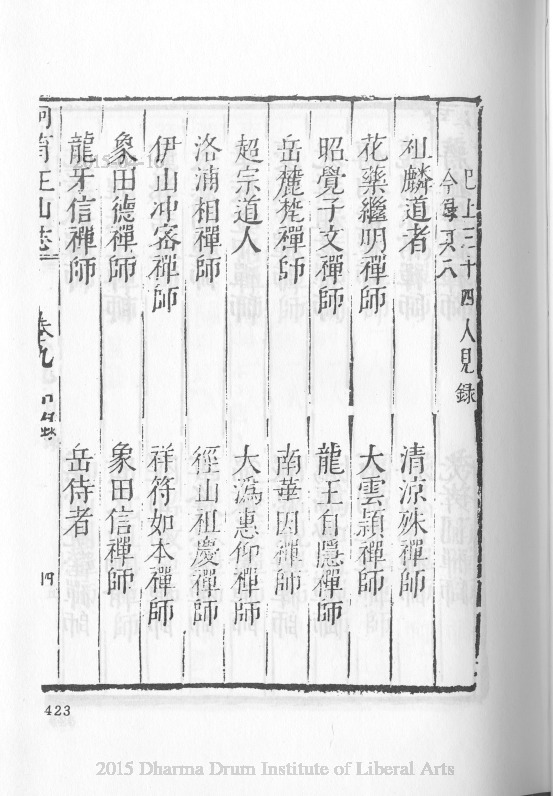 已上三十四人見録
祖麟道者　清涼殊禪師
花藥繼明禪師　大雲穎禪師
昭覺子文禪師　龍王自隱禪師
岳麓梵禪師　南華因禪師
超宗道人　大溈惠仰禪師
洛浦相禪師　徑山祖慶禪師
伊山冲密禪師　祥符如本禪師
象田德禪師　象田信禪師
龍牙信禪師　岳侍者
育王山志　卷九　四
423
2015 Dharma Drum Institute of Liberal Arts